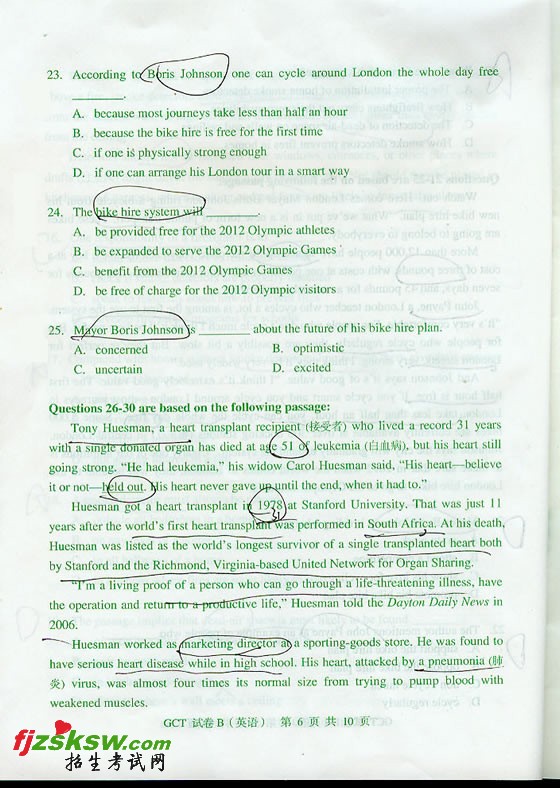 23. According to Boris Johnson, one can cycle around London the whole day free
________.
A. because most journeys take less than half an hour
B. because the bike hire is free for the first time
C. if one is physically strong enough
D. if one can arrange his London tour in a smart way
24. The bike hire system will ________.
A. be provided free for the 2012 Olympic athletes
B. be expanded to serve the 2012 Olympic Games
C. benefit from the 2012 Olympic Games
D. be free of charge for the 2012 Olympic visitors
25. Mayor Boris Johnson is ________ about the future of his bike hire plan.
A. concerned B. optimistic
C. uncertain D. excited
Questions 26-30 are based on the following passage:
Tony Huesman, a heart transplant recipient (接受者) who lived a record 31 years
with a single donated organ has died at age 51 of leukemia (白血病), but his heart still
going strong. “He had leukemia,” his widow Carol Huesman said, “His heart—believe
it or not—held out. His heart never gave up until the end, when it had to.”
Huesman got a heart transplant in 1978 at Stanford University. That was just 11
31
years after the world’s first heart transplant was performed in South Africa. At his death,
Huesman was listed as the world’s longest survivor of a single transplanted heart both
by Stanford and the Richmond, Virginia-based United Network for Organ Sharing.
“I’m a living proof of a person who can go through a life-threatening illness, have
the operation and return to a productive life,” Huesman told the Dayton Daily News in
2006.
Huesman worked as marketing director at a sporting-goods store. He was found to
have serious heart disease while in high school. His heart, attacked by a pneumonia (肺
炎) virus, was almost four times its normal size from trying to pump blood with
weakened muscles.
GCT 试卷B（英语） 第 6 页 共 10 页
fjzsksw.com
招生考试网